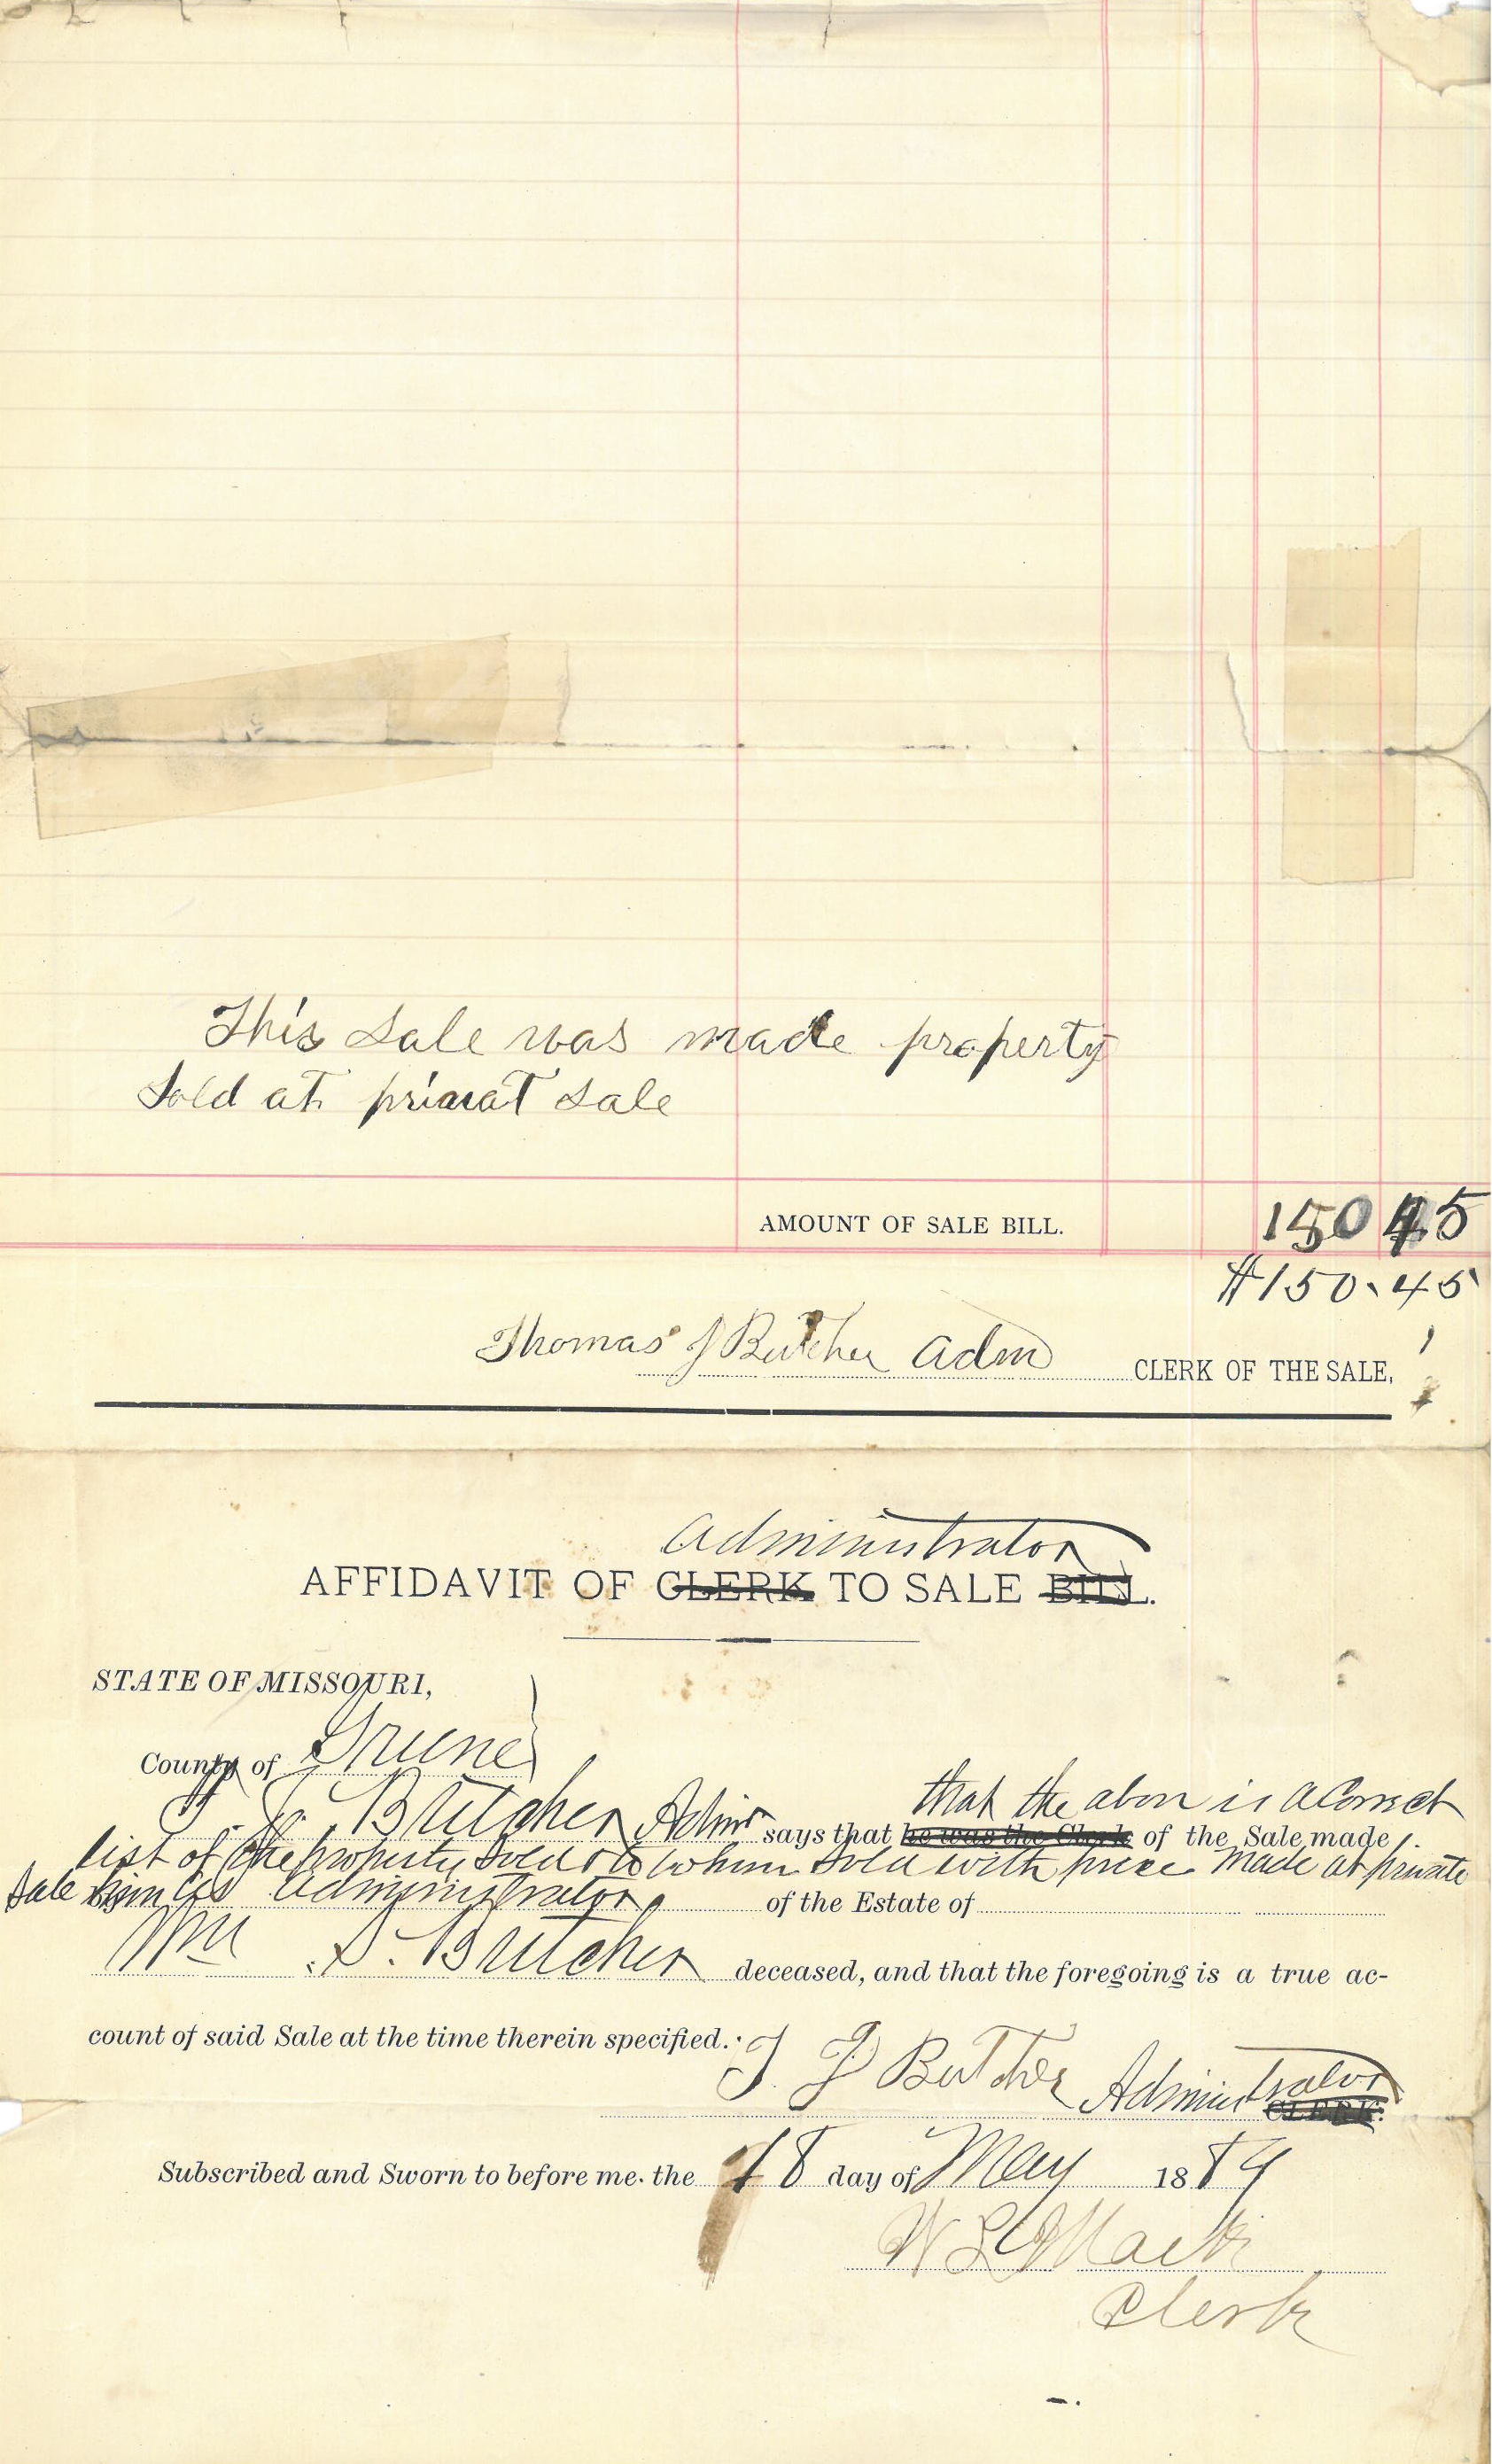 This Sale was made property
Sold at privat Sale
AMOUNT OF SALE BILL. 150 45
$150.45
Thomas J Butcher Adm CLERK OF THE SALE,
Administrator
AFFIDAVIT OF CLERK TO SALE BILL.
STATE OF MISSOURI,
County of Greene
that the abov is a Correct
T. J. Butcher Admr says that he was the Clerk of the Sale made
list of the property Sold & to whom Sold with price made at private
Sale as Administrator of the Estate of
Wm S. Butcher deceased, and that the foregoing is a true ac-
count of said Sale at the time therein specified.
T. J Butcher Administrator
CLERK.
Subscribed and Sworn to before me the 18 day of May 1889
Clerk